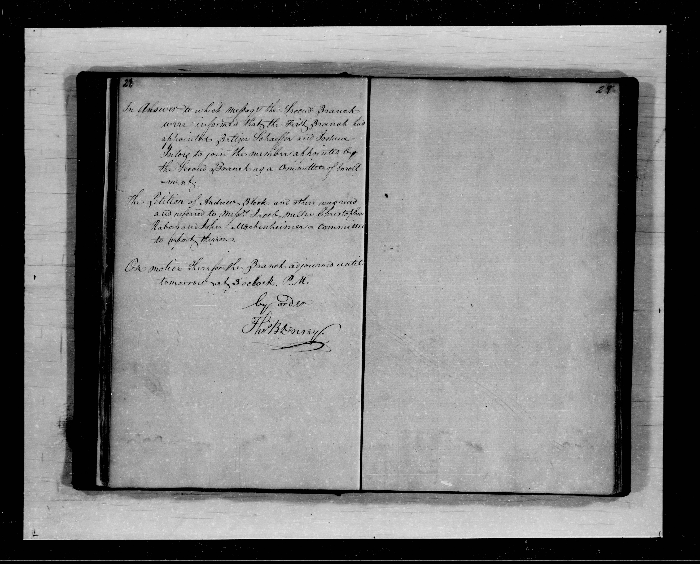 22
In Answer to which message the Second Branch
were informed that the First Branch has
appointed Schaeffer and Joshua
to join the member appointed by
the Second Branch as a Committee of Enroll
ment,
The Petition of Andrew Block and others was read
and referred to Mess.rs Jacob Miller Christopher
Raborg and John Mackenheimer a Committee
to report thereon
On motion therefor the Branch adjourns until
tomorrow at 3 oclock P.M.
by order
Tho.s